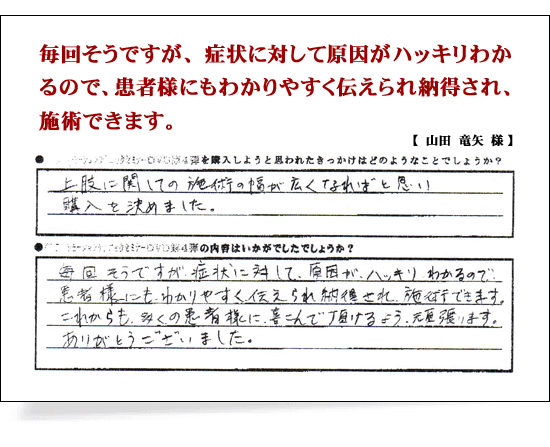 毎回そうですが、症状に対して原因がハッキリわか
るので、患者様にもわかりやすく伝えられ納得され、
施術できます。
【 山田 竜矢 様 】
DVD第4弾を購入しようと思われたきっかけはどのようなことでしょうか?
上肢に関しての施術の幅が広くなればと思い
購入を決めました。
セミナーDVD第4弾の内容はいかがでしたでしょうか?
毎回そうですが、症状に対して、原因が、ハッキリわかるので、
患者様にも、わかりやすく、伝えられ納得され、施術できます。
これからも、多くの患者様に、喜こんで頂けるよう、頑張ります。
ありがとうございました。